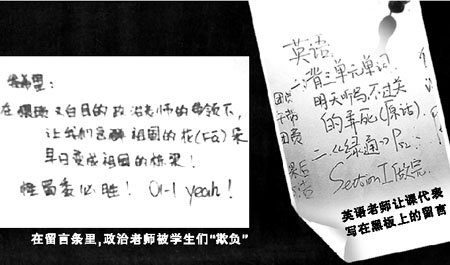 希望：
在 又白目的政治老师的带领下，
让我们 祖国的花(Fa)朵
早日变成祖国的栋梁！
必胜！ Oh yeah！
在留言条里，政治老师被学生们“欺负”
英语
一、背三单元单词.
明天听写,不过关
的弄死(原话).
二.《绿通》P
Section I 做完.
英语老师让课代表
写在黑板上的留言